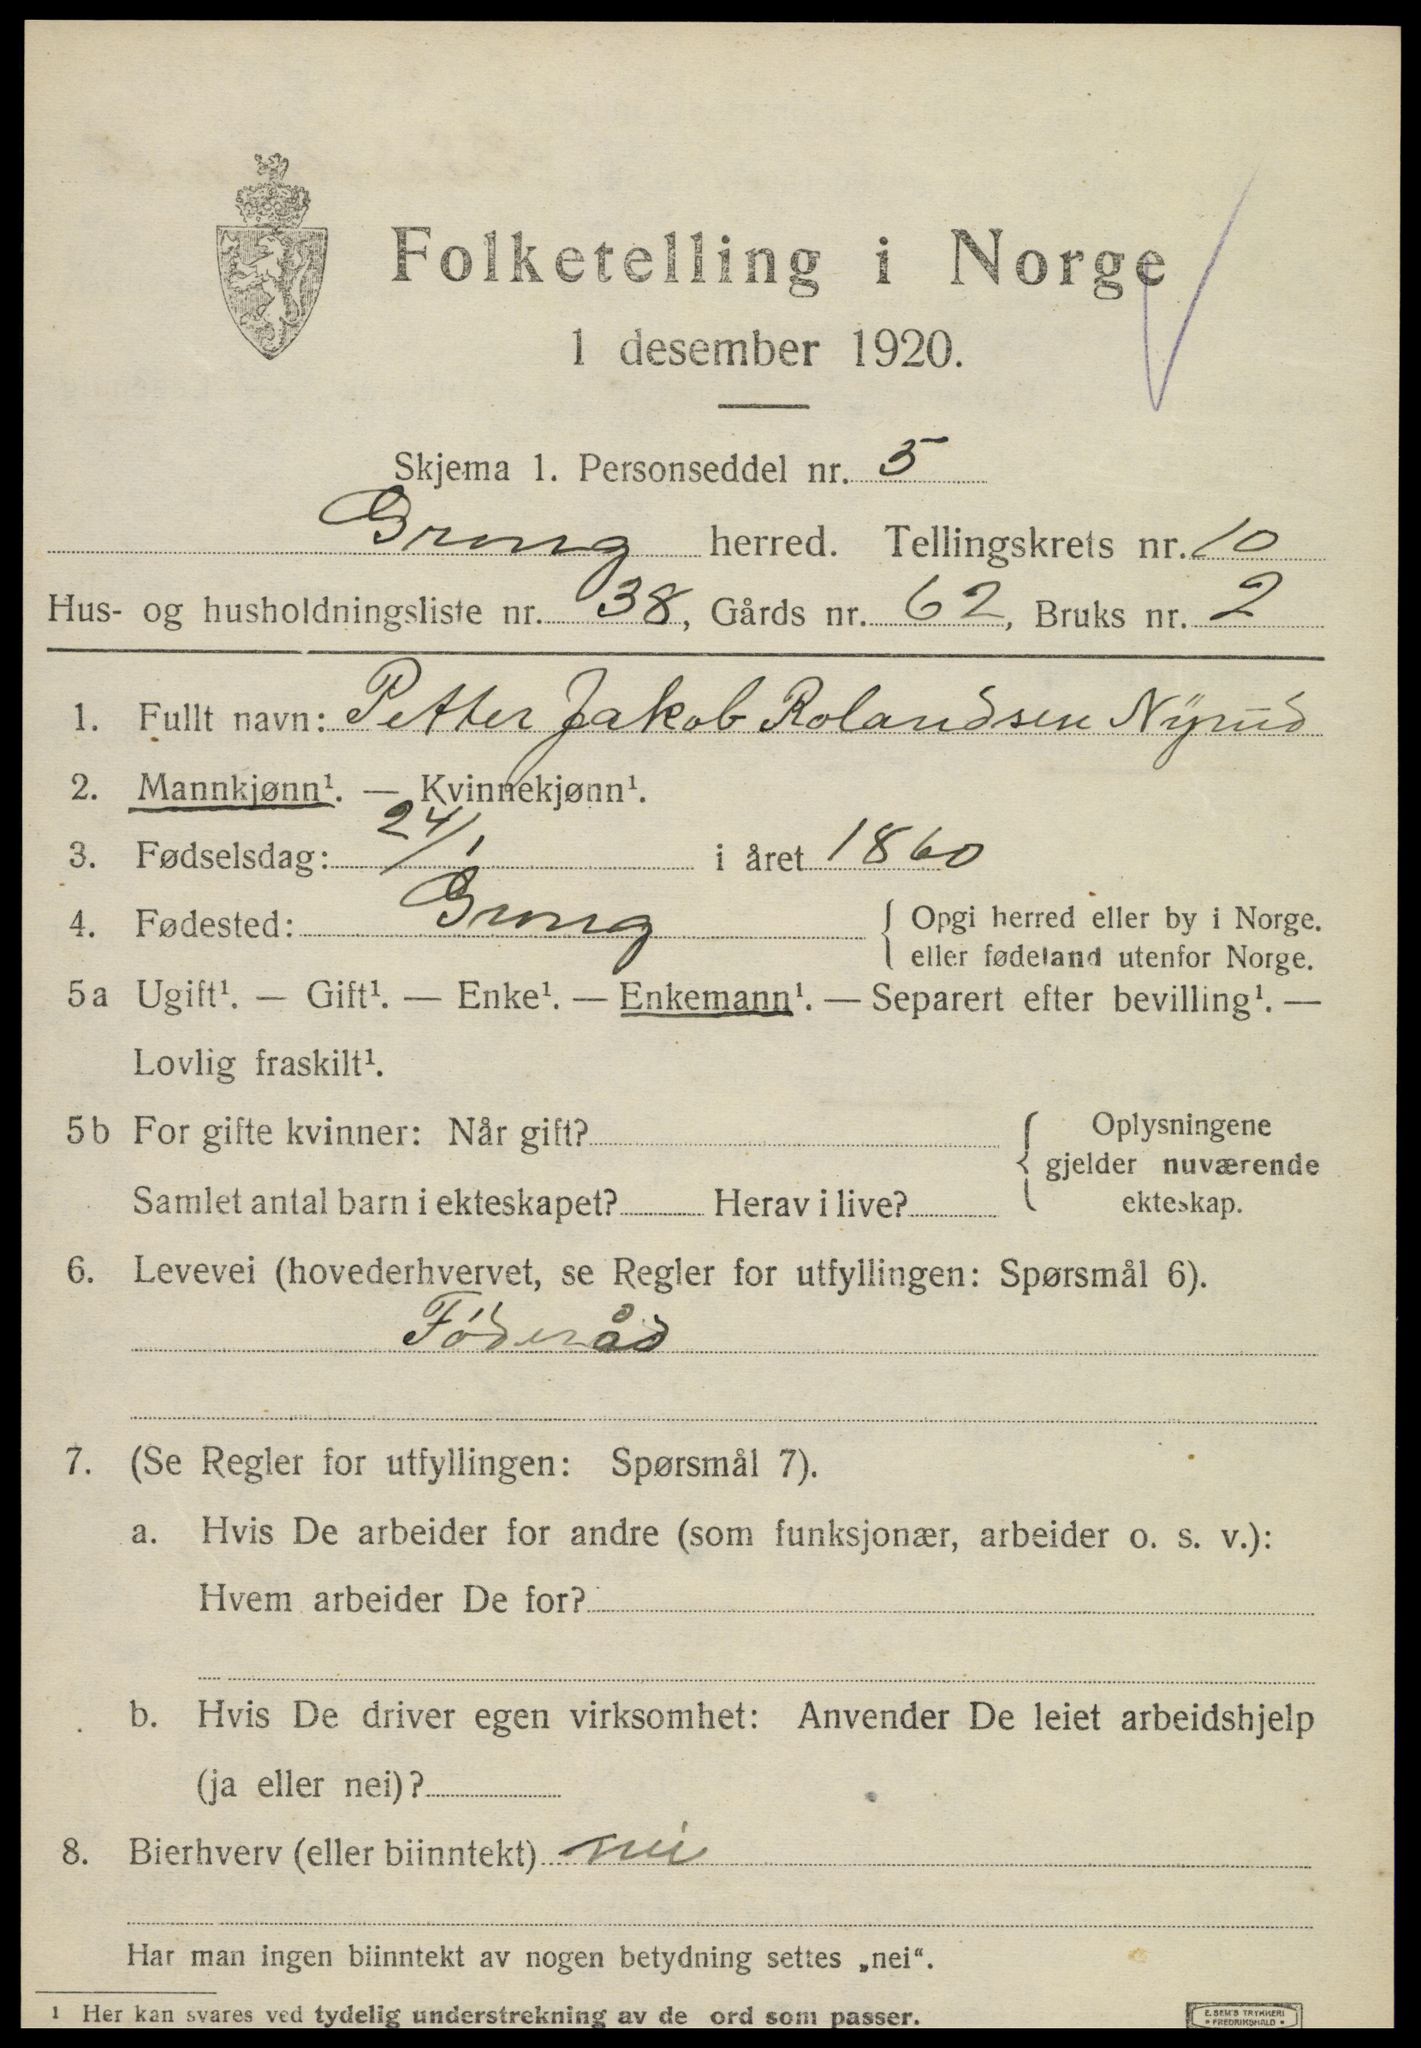 Folketelling i Norge
1 desember 1920.
Skjema 1. Personseddel nr. 5
Grong herred. Tellingskrets nr. 10
Hus- og husholdningsliste nr. 38, Gårds nr. 62, Bruks nr. 2
1. Fullt navn: Petter Jakob Rolandsen Nyrud
2. Mannkjønn¹. — Kvinnekjønn¹.
3. Fødselsdag: 24/1 i året 1860
4. Fødested: Grong { Opgi herred eller by i Norge.
eller fødeland utenfor Norge.
5a Ugift¹. — Gift¹. — Enke¹. — Enkemann¹. — Separert efter bevilling¹. —
Lovlig fraskilt¹.
5b For gifte kvinner: Når gift? { Oplysningene
gjelder nuværende
Samlet antal barn i ekteskapet? Herav i live? ekteskap.
6. Levevei (hovederhvervet, se Regler for utfyllingen: Spørsmål 6).
Føderåd
7. (Se Regler for utfyllingen: Spørsmål 7).
a. Hvis De arbeider for andre (som funksjonær, arbeider o. s. v.):
Hvem arbeider De for?
b. Hvis De driver egen virksomhet: Anvender De leiet arbeidshjelp
(ja eller nei)?
8. Bierhverv (eller biinntekt) nei
Har man ingen biinntekt av nogen betydning settes „nei“.
1 Her kan svares ved tydelig understrekning av de ord som passer.
E. SEM'S TRYKKERI
• FREDRIKSHALD •